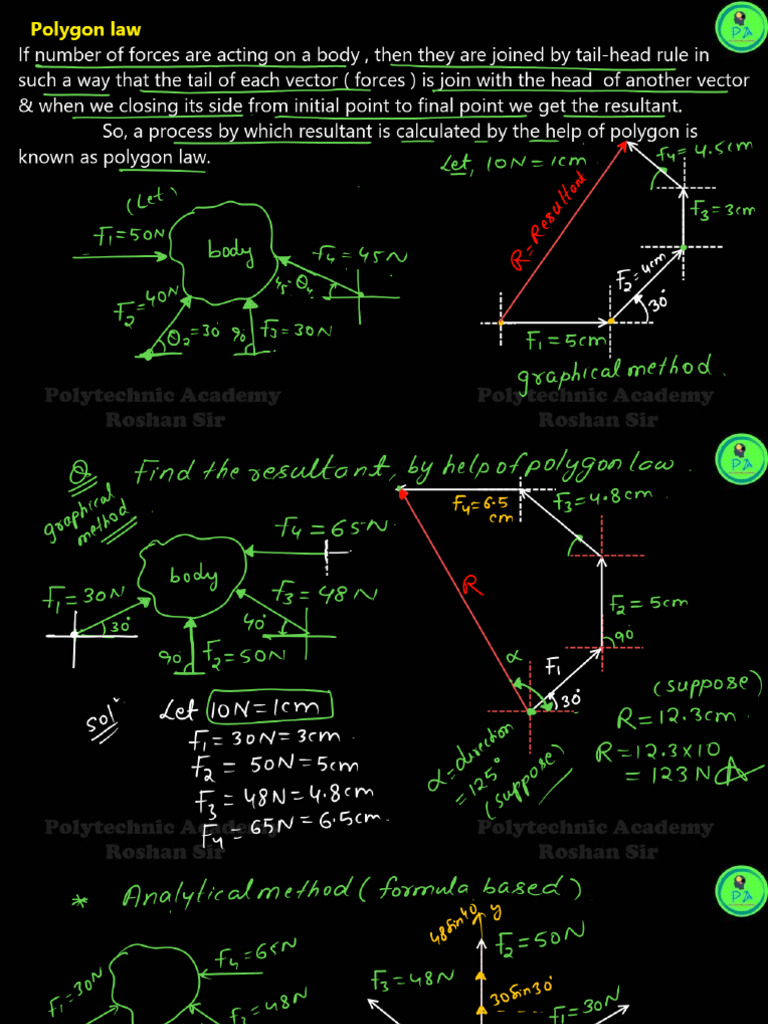 Polygon law
PA
If number of forces are acting on a body , then they are joined by tail-head rule in
such a way that the tail of each vector ( forces ) is join with the head of another vector
& when we closing its side from initial point to final point we get the resultant.
So, a process by which resultant is calculated by the help of polygon is
known as polygon law.
Let, 10N = 1cm
F4 = 4.5cm
(Let)
F1 = 50N
body
F4 = 45N
45° θ4
F2 = 40N
θ2 = 30°
90°
F3 = 30N
R = Resultant
F3 = 3cm
F2 = 4cm
30°
F1 = 5cm
graphical method.
Polytechnic Academy
Roshan Sir
Polytechnic Academy
Roshan Sir
PA
Q Find the resultant, by help of polygon law.
graphical
method
F4 = 65N
body
F1 = 30N
30°
F3 = 48N
40°
90°
F2 = 50N
F4 = 6.5
cm
F3 = 4.8cm
R
F2 = 5cm
90°
α
F1
30°
α = direction
= 125°
(suppose)
(suppose)
R = 12.3cm.
R = 12.3×10
= 123N A
Solⁿ
Let 10N = 1cm
F1 = 30N = 3cm.
F2 = 50N = 5cm
F3 = 48N = 4.8cm
F4 = 65N = 6.5cm.
Polytechnic Academy
Roshan Sir
Polytechnic Academy
Roshan Sir
PA
* Analytical method ( formula based )
F1 = 30N
F4 = 65N
F3 = 48N
48sin40°
y
F2 = 50N
F3 = 48N
30sin30°
F1 = 30N